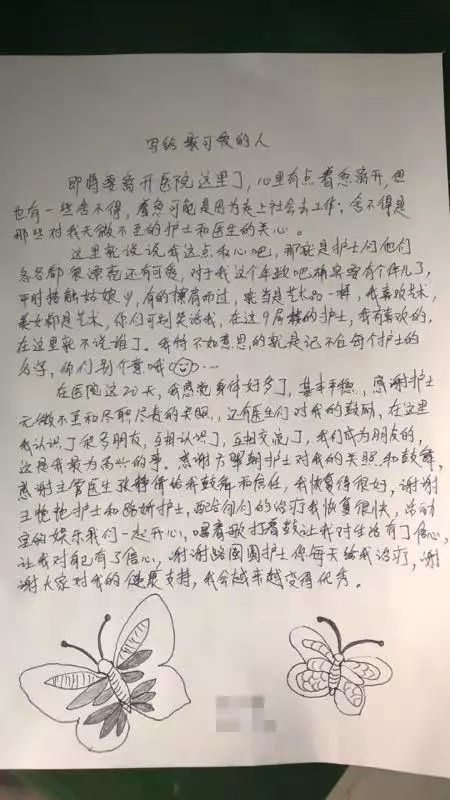 写给最可爱的人
即将要离开医院这里了，心里有点着急离开，但
也有一些舍不得，着急可能是因为走上社会去工作；舍不得是
那些对我无微不至的护士和医生的关心。
这里就说说我这点私心吧，那就是护士们他们
各各都很漂亮还有可爱，对于我这个年龄吧确实要有个伴儿了，
平时接触姑娘少，有的擦肩而过，就当是艺术品一样，我喜欢艺术，
美女都是艺术，你们可别笑话我，在这9层楼的护士，我有喜欢的，
在这里就不说谁了。我特不好意思的就是记不住每个护士的
名字，你们别介意哦
在医院这20天，我感觉身体好多了，基本平稳，感谢护士
无微不至和尽职尽责的关照，还有医生们对我的鼓励，在这里
我认识了很多朋友，互相认识了，互相交流了，我们成为朋友的，
这是我最为高兴的事。感谢方翠朝护士对我的关照和鼓舞，
感谢主管医生张静倩给我鼓舞和信任，我恢复得很好，谢谢
王艳艳护士和路娇护士，配合你们的治疗我恢复很快，活动
室的娱乐我们一起开心，唱着歌打着鼓让我对生活有了信心，
让我对自己有了信心，谢谢路圆圆护士你每天给我治疗，谢
谢大家对我的健康支持，我会越来越变得优秀。